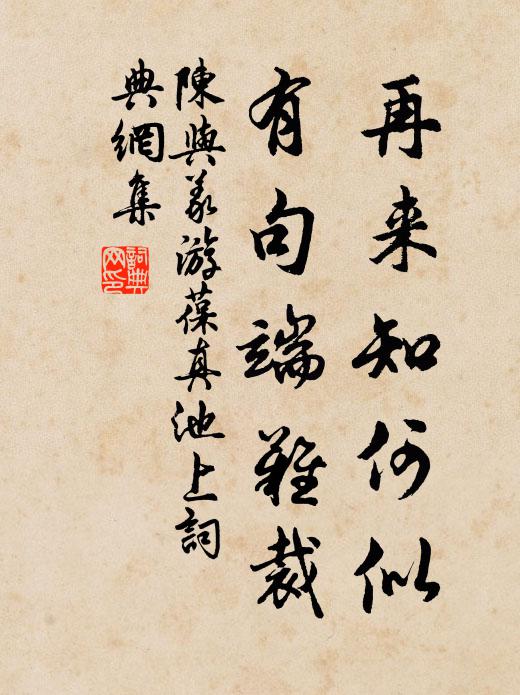 再来知何似
有句端難裁
陳與義游葆真池上詞
典網集
詞典網印